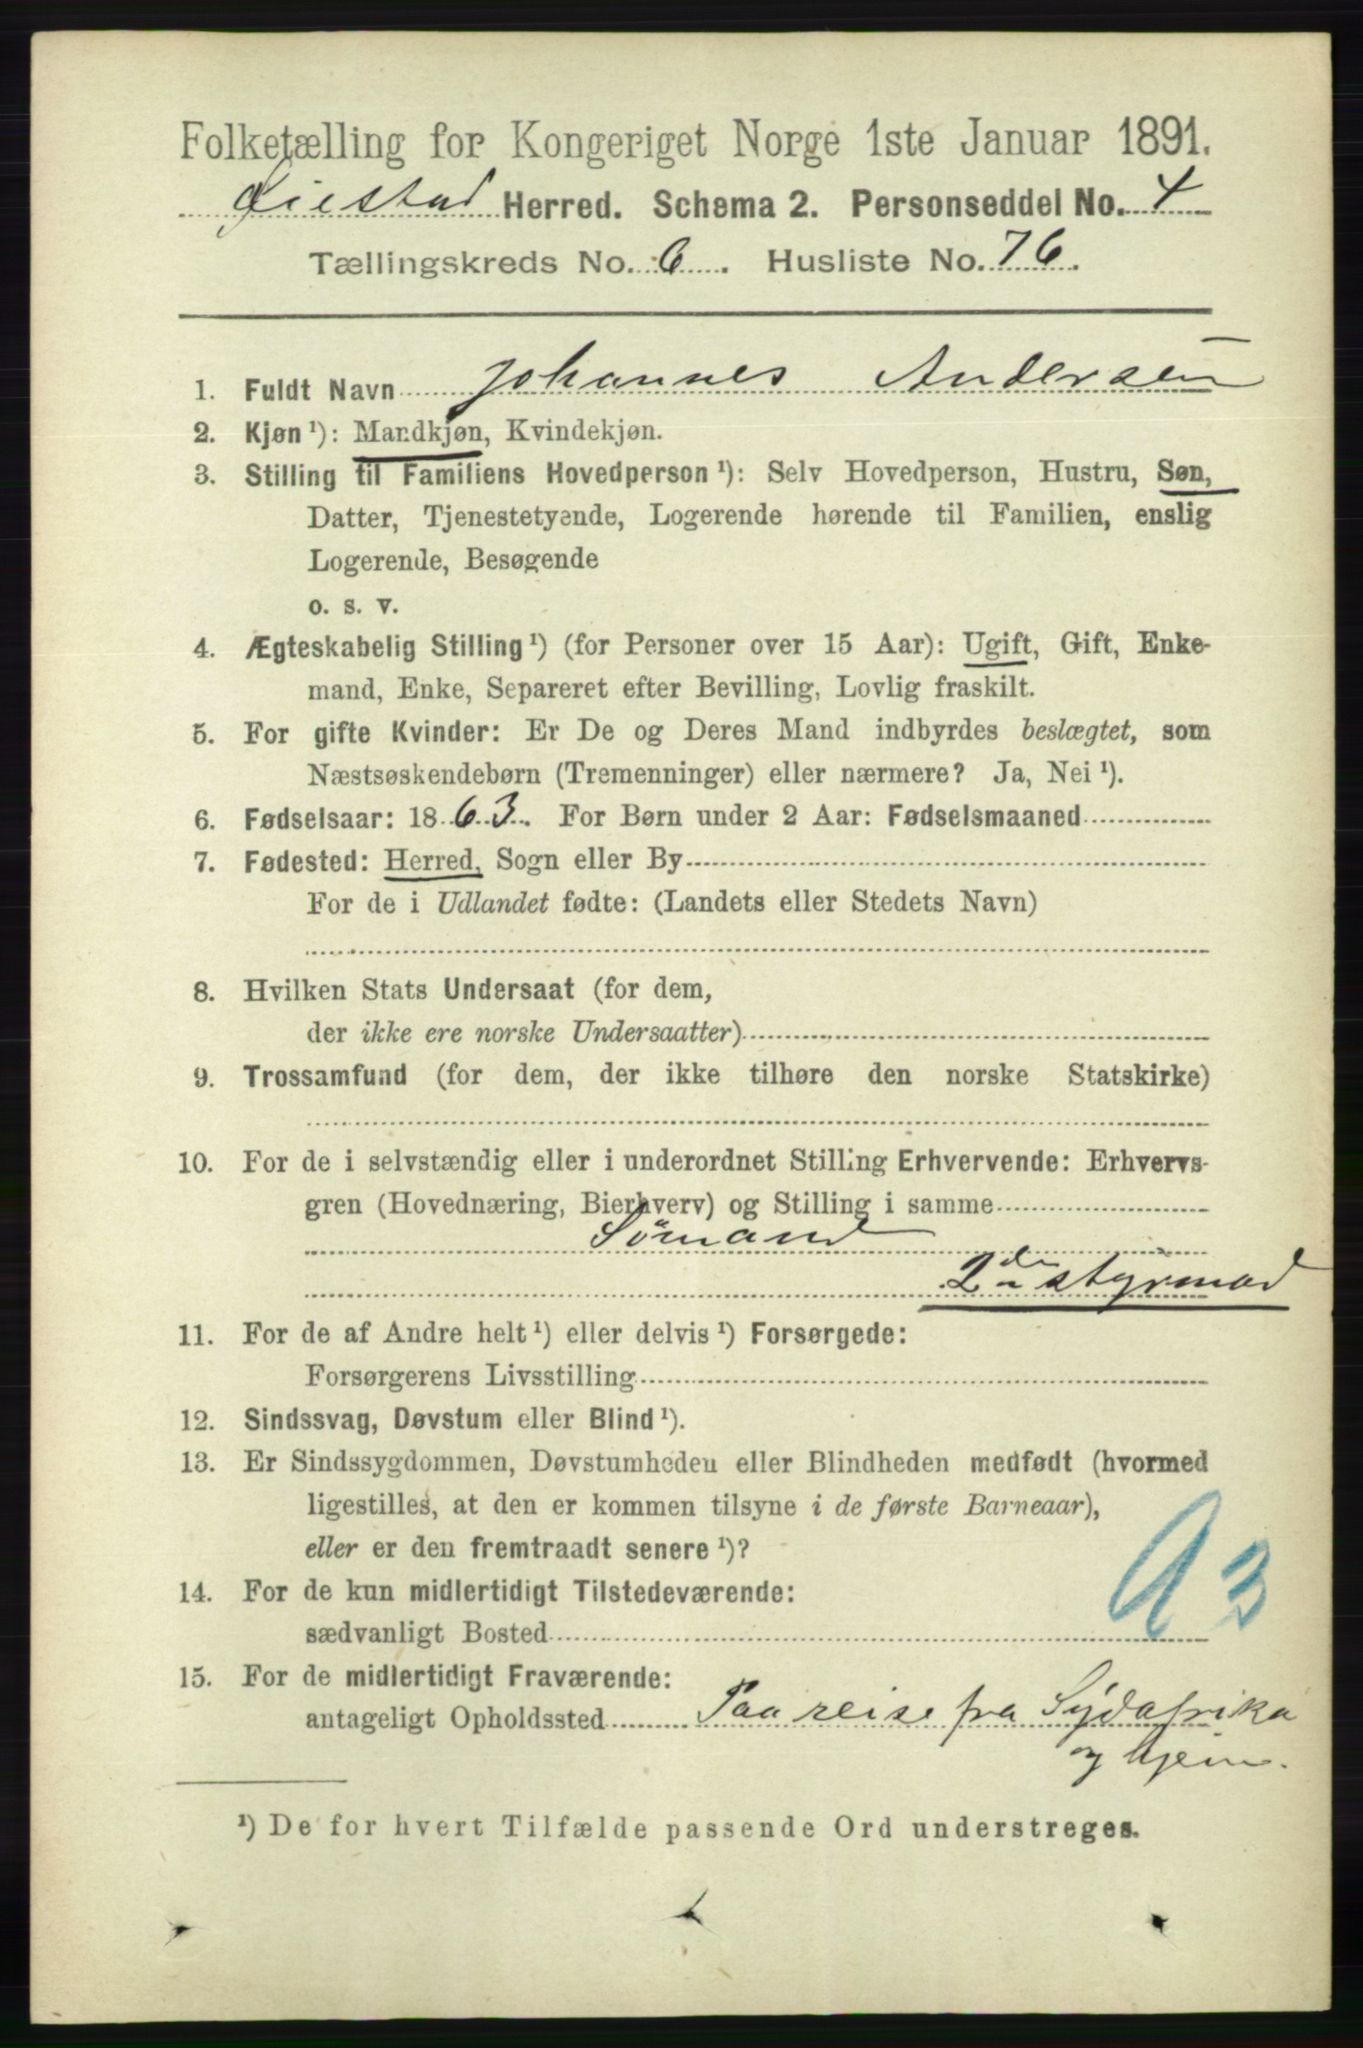 Folketælling for Kongeriget Norge 1ste Januar 1891.
Øiestad Herred. Schema 2. Personseddel No. 4
Tællingskreds No. 6. Husliste No. 76.
1. Fuldt Navn Johannes Andersen
2. Kjøn ¹): Mandkjøn, Kvindekjøn.
3. Stilling til Familiens Hovedperson ¹): Selv Hovedperson, Hustru, Søn,
Datter, Tjenestetyende, Logerende hørende til Familien, enslig
Logerende, Besøgende
o. s. v.
4. Ægteskabelig Stilling ¹) (for Personer over 15 Aar): Ugift, Gift, Enke-
mand, Enke, Separeret efter Bevilling, Lovlig fraskilt.
5. For gifte Kvinder: Er De og Deres Mand indbyrdes beslægtet, som
Næstsøskendebørn (Tremenninger) eller nærmere? Ja, Nei ¹).
6. Fødselsaar: 1863. For Børn under 2 Aar: Fødselsmaaned
7. Fødested: Herred, Sogn eller By
For de i Udlandet fødte: (Landets eller Stedets Navn)
8. Hvilken Stats Undersaat (for dem,
der ikke ere norske Undersaatter)
9. Trossamfund (for dem, der ikke tilhøre den norske Statskirke)
10. For de i selvstændig eller i underordnet Stilling Erhvervende: Erhvervs-
gren (Hovednæring, Bierhverv) og Stilling i samme
Sömand
2den styrmad
11. For de af Andre helt ¹) eller delvis ¹) Forsørgede:
Forsørgerens Livsstilling
12. Sindssvag, Døvstum eller Blind ¹).
13. Er Sindssygdommen, Døvstumheden eller Blindheden medfødt (hvormed
ligestilles, at den er kommen tilsyne i de første Barneaar),
eller er den fremtraadt senere ¹)?
14. For de kun midlertidigt Tilstedeværende:
sædvanligt Bosted
93
15. For de midlertidigt Fraværende:
antageligt Opholdssted Paa reise fra Sydafrika
og hjem.
¹) De for hvert Tilfælde passende Ord understreges.